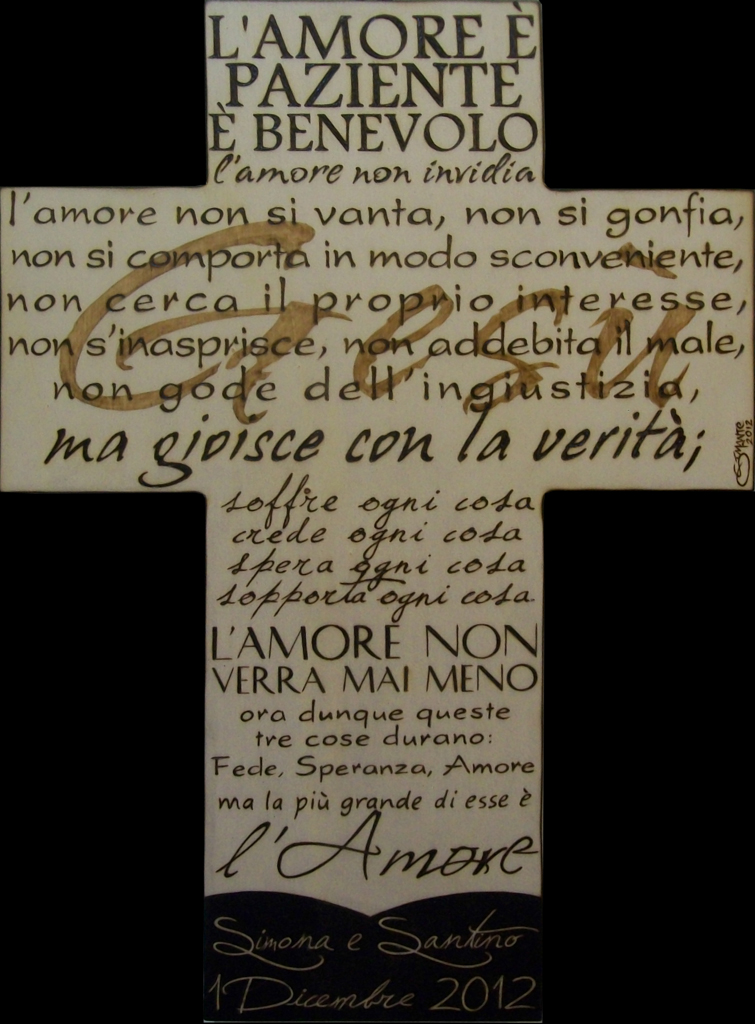 L'AMORE È
PAZIENTE
È BENEVOLO
l'amore non invidia
l'amore non si vanta, non si gonfia,
non si comporta in modo sconveniente,
non cerca il proprio interesse,
non s'inasprisce, non addebita il male,
non gode dell'ingiustizia,
Gesù
ma gioisce con la verità;
2012
soffre ogni cosa
crede ogni cosa
spera ogni cosa
sopporta ogni cosa.
L'AMORE NON
VERRA MAI MENO
ora dunque queste
tre cose durano:
Fede, Speranza, Amore
ma la più grande di esse è
l'Amore
Simona e Santino
1 Dicembre 2012